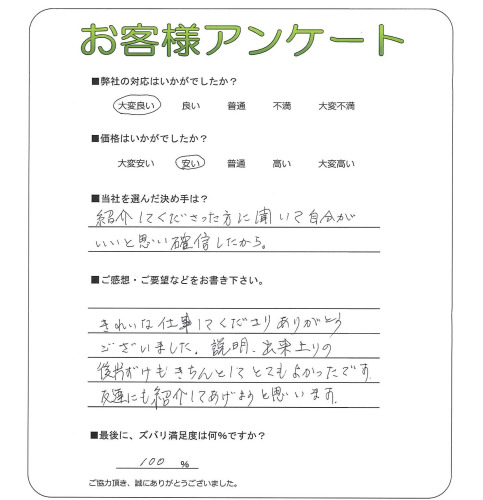 お客様アンケート
■弊社の対応はいかがでしたか？
大変良い 良い 普通 不満 大変不満
■価格はいかがでしたか？
大変安い 安い 普通 高い 大変高い
■当社を選んだ決め手は？
紹介してくださった方に聞いて自分が
いいと思い確信したから。
■ご感想・ご要望などをお書き下さい。
きれいな仕事してくださりありがとう
ございました。説明、出来上りの
後片ずけもきちんとしてとてもよかったです。
友達にも紹介してあげようと思います。
■最後に、ズバリ満足度は何％ですか？
100 ％
ご協力頂き、誠にありがとうございました。